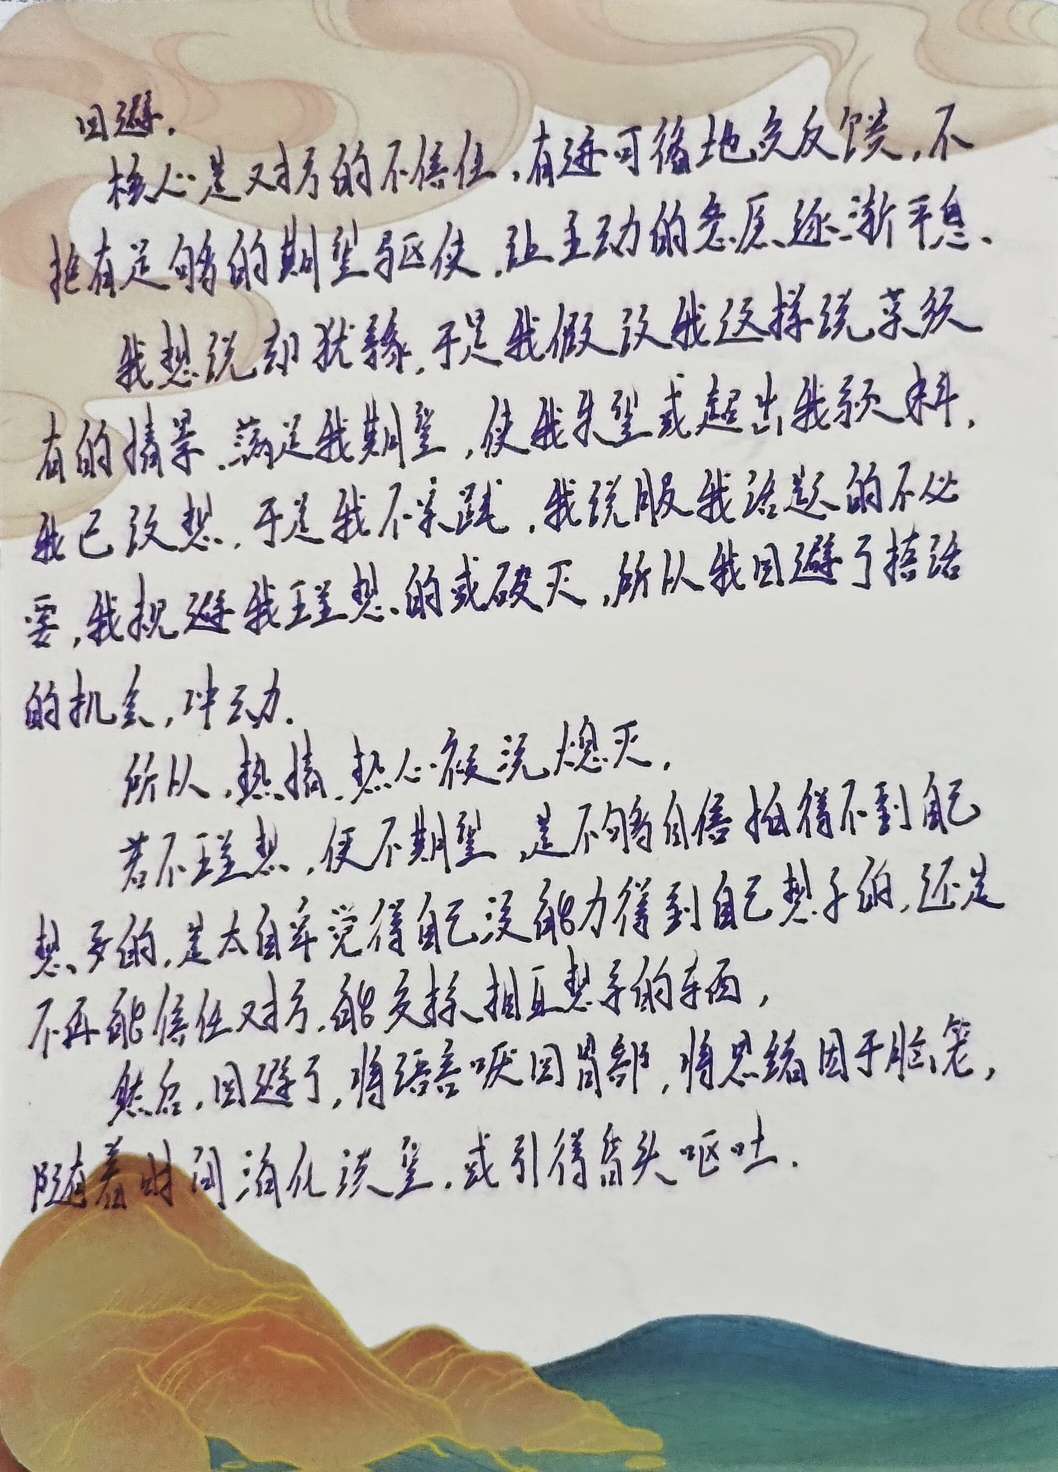 回避.
核心是对方的不信任,有迹可循地负反馈,不
拒有足够的期望驱使,让主动的意愿逐渐平息、
我想说却犹豫,于是我假设我这样说某须
有的情景.满足我期望,使我失望或超出我预料,
我已设想,于是我不实践,我说服我话题的不必
要,我规避我理想的或破灭,所以我回避了搭话
的机会,冲动.
所以,热情,热心被浇熄灭,
若不理想,便不期望,是不够自信拍得不到自己
想多的,是太自卑觉得自己没能力得到自己想予的,还是
不再能信任对方,能交换相互想予的东西,
然后,回避了,将语言咽回胃部,将思绪困于脑笼,
随着时间消化淡望,或引得昏头呕吐.